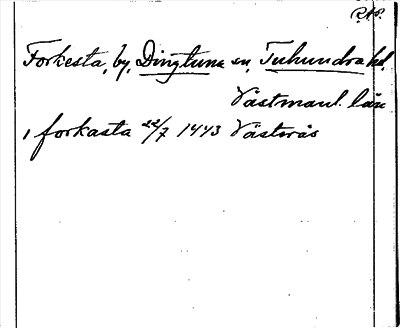 R.A.P.
Forkesta, by, Dingtuna sn, Tuhundra hd.
Västmanl. län
, forkasta 22/7 1443 Västerås